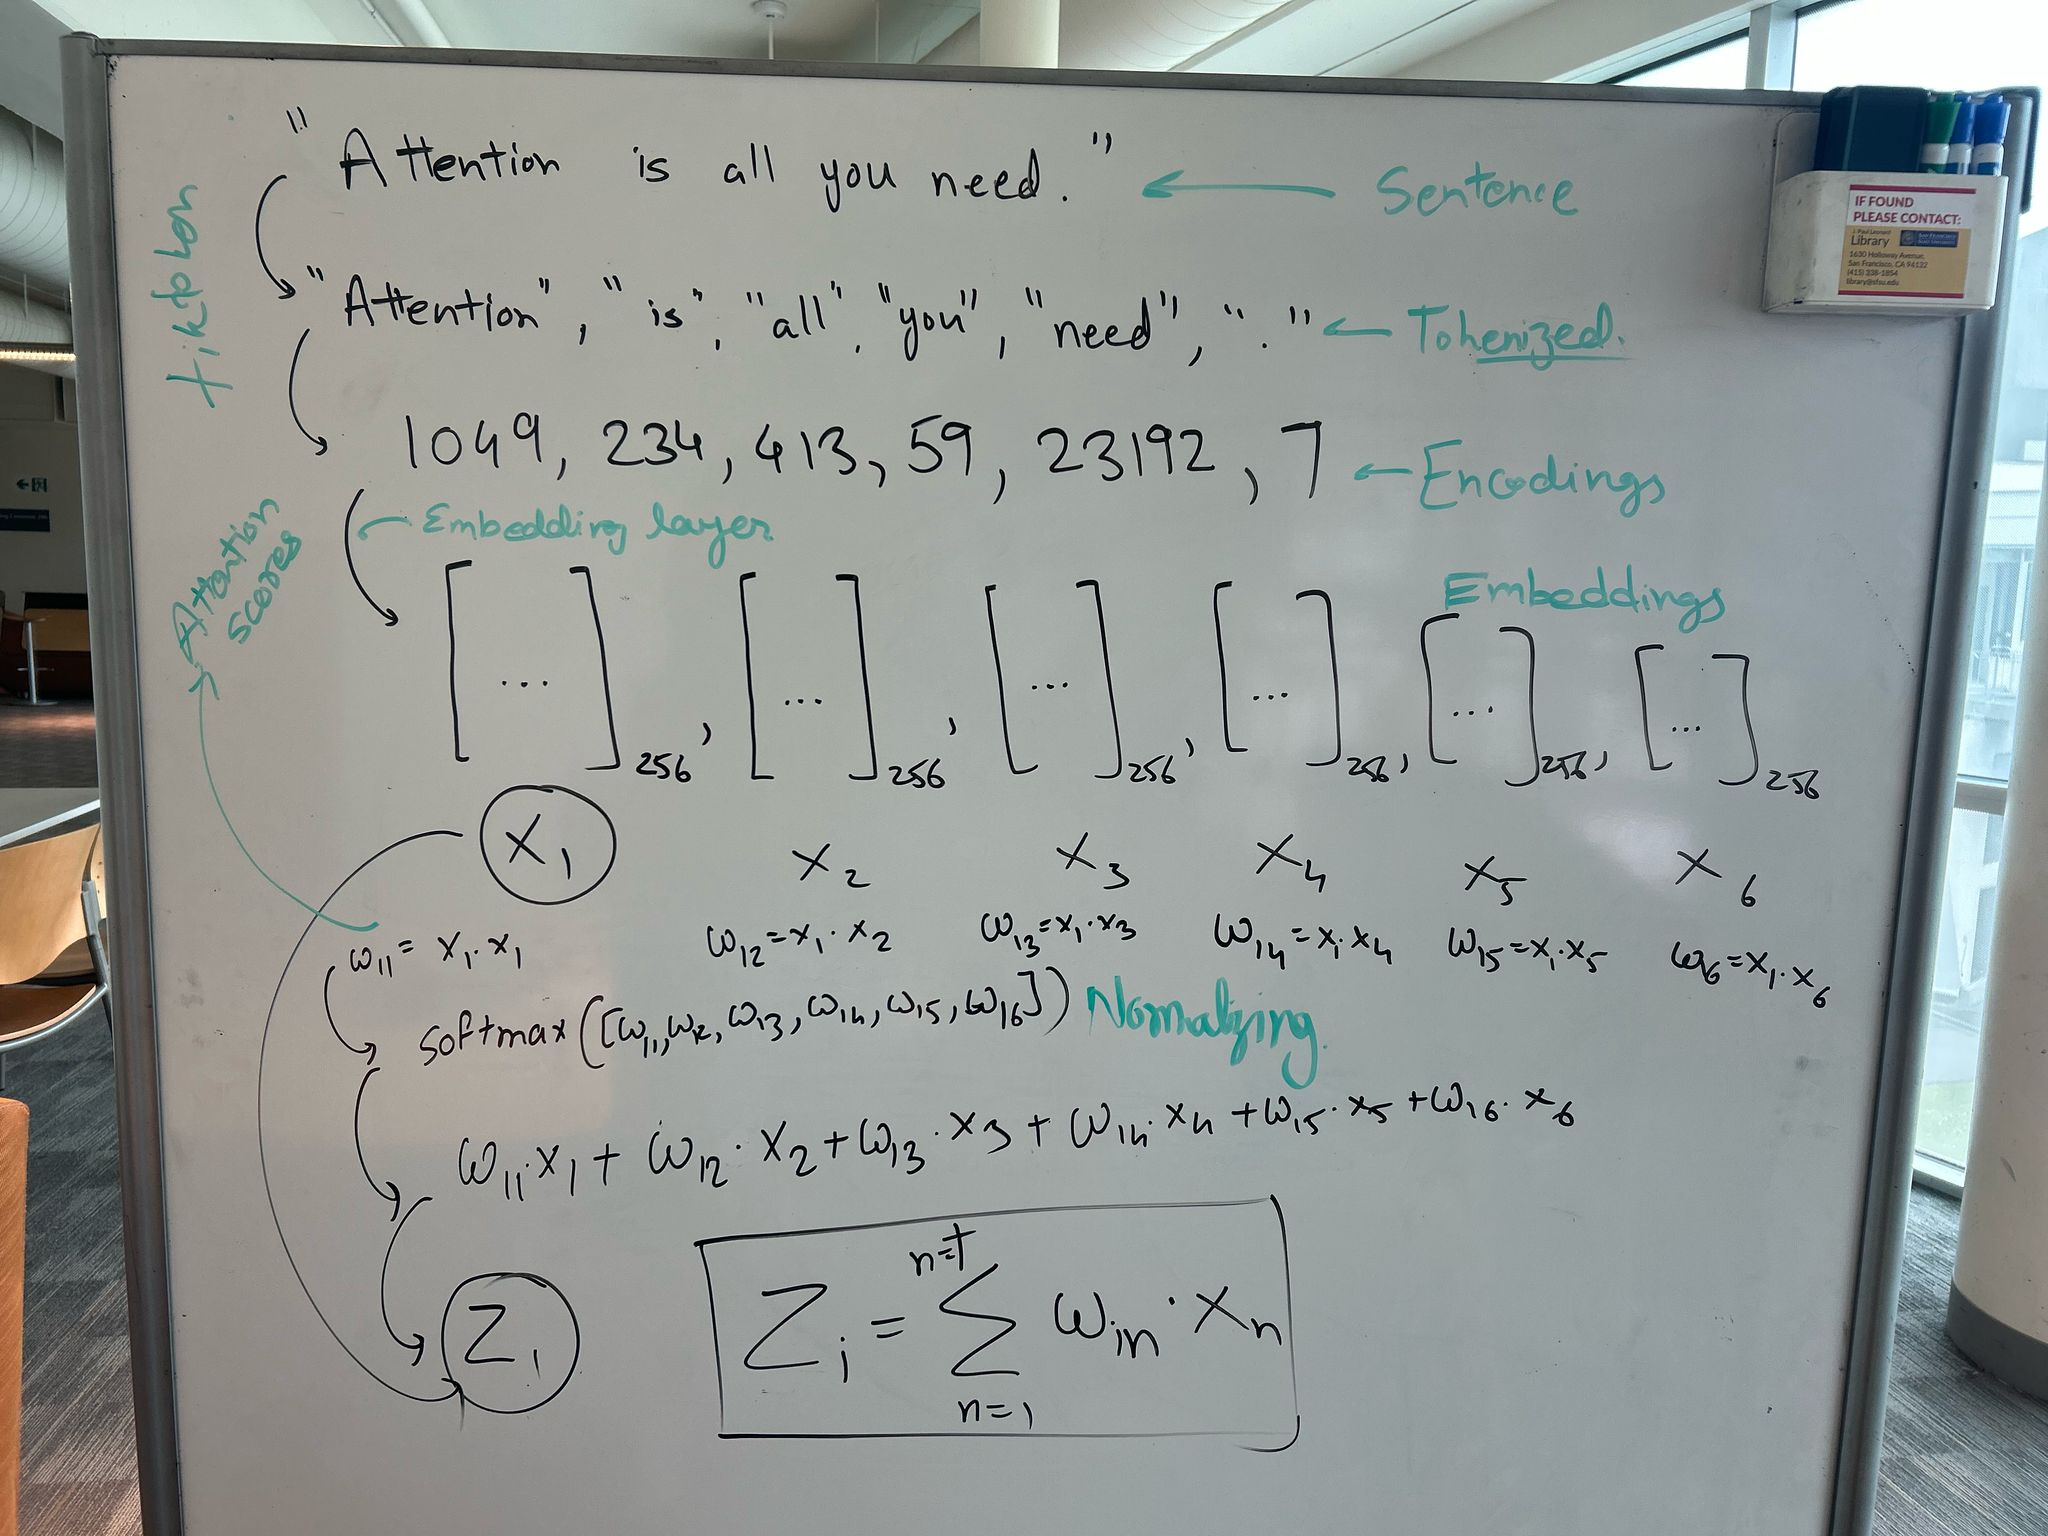 "Attention is all you need." ← Sentence
tiktoken
"Attention", "is", "all", "you", "need", "." ← Tokenized.
1049, 234, 413, 59, 23192, 7 ← Encodings
Embedding layer
Embeddings
[...]256, [...]256, [...]256, [...]256, [...]256, [...]256
Attention
Scores
X1 X2 X3 X4 X5 X6
ω11 = x1·x1 ω12=x1·x2 ω13=x1·x3 ω14=x1·x4 ω15=x1·x5 ω16=x1·x6
softmax([ω11,ω12,ω13,ω14,ω15,ω16]) Normalizing.
ω11·x1 + ω12·x2+ω13·x3+ω14·x4+ω15·x5+ω16·x6
Z1
n=t
Zi = Σ ωin·Xn
n=1
IF FOUND
PLEASE CONTACT:
J. Paul Leonard
Library
SAN FRANCISCO
STATE UNIVERSITY
1630 Holloway Avenue,
San Francisco, CA 94132
(415) 338-1854
library@sfsu.edu